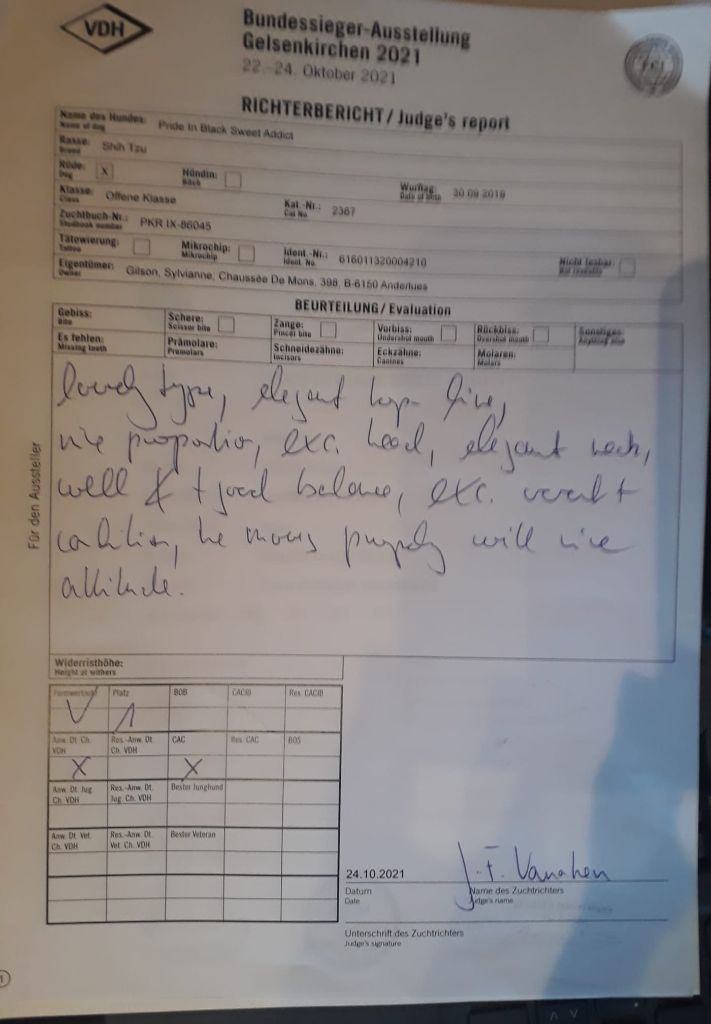 VDH
Bundessieger-Ausstellung
Gelsenkirchen 2021
22.-24. Oktober 2021
RICHTERBERICHT / Judge's report
Name des Hundes: Pride In Black Sweet Addict
Name of dog
Rasse: Shih Tzu
Breed
Rüde: X Hündin: Wurftag: 30.09.2019
Dog Bitch Date of birth
Klasse: Offene Klasse Kat.-Nr.: 2367
Class Cat No.
Zuchtbuch-Nr.: PKR IX-86045
Studbook number
Tätowierung: Mikrochip: Ident.-Nr.: 616011320004210 Nicht lesbar:
Tattoo Mikrochip Ident. No. Not readable
Eigentümer: Gilson, Sylvianne, Chaussée De Mons, 398, B-6150 Anderlues
Owner
BEURTEILUNG / Evaluation
Gebiss: Schere: Zange: Vorbiss: Rückbiss: Sonstiges:
Bite Scissor bite Pincer bite Undershot mouth Overshot mouth Anything else
Es fehlen: Prämolare: Schneidezähne: Eckzähne: Molaren:
Missing teeth Premolars Incisors Canines Molars
lovely type, elegant top line,
nice proportion, exc. head, elegant neck,
well & good balance, exc. coat
condition, he moves properly with nice
attitude.
Für den Aussteller
Widerristhöhe:
Height at withers
Formwertnote Platz BOB CACIB Res. CACIB
V 1
Anw. Dt. Ch. VDH Res.-Anw. Dt. Ch. VDH CAC Res. CAC BOS
X X
Anw. Dt. Jug. Ch. VDH Res.-Anw. Dt. Jug. Ch. VDH Bester Junghund
Anw. Dt. Vet. Ch. VDH Res.-Anw. Dt. Vet. Ch. VDH Bester Veteran
24.10.2021
Datum Name des Zuchtrichters
Date Judge's name
Unterschrift des Zuchtrichters
Judge's signature